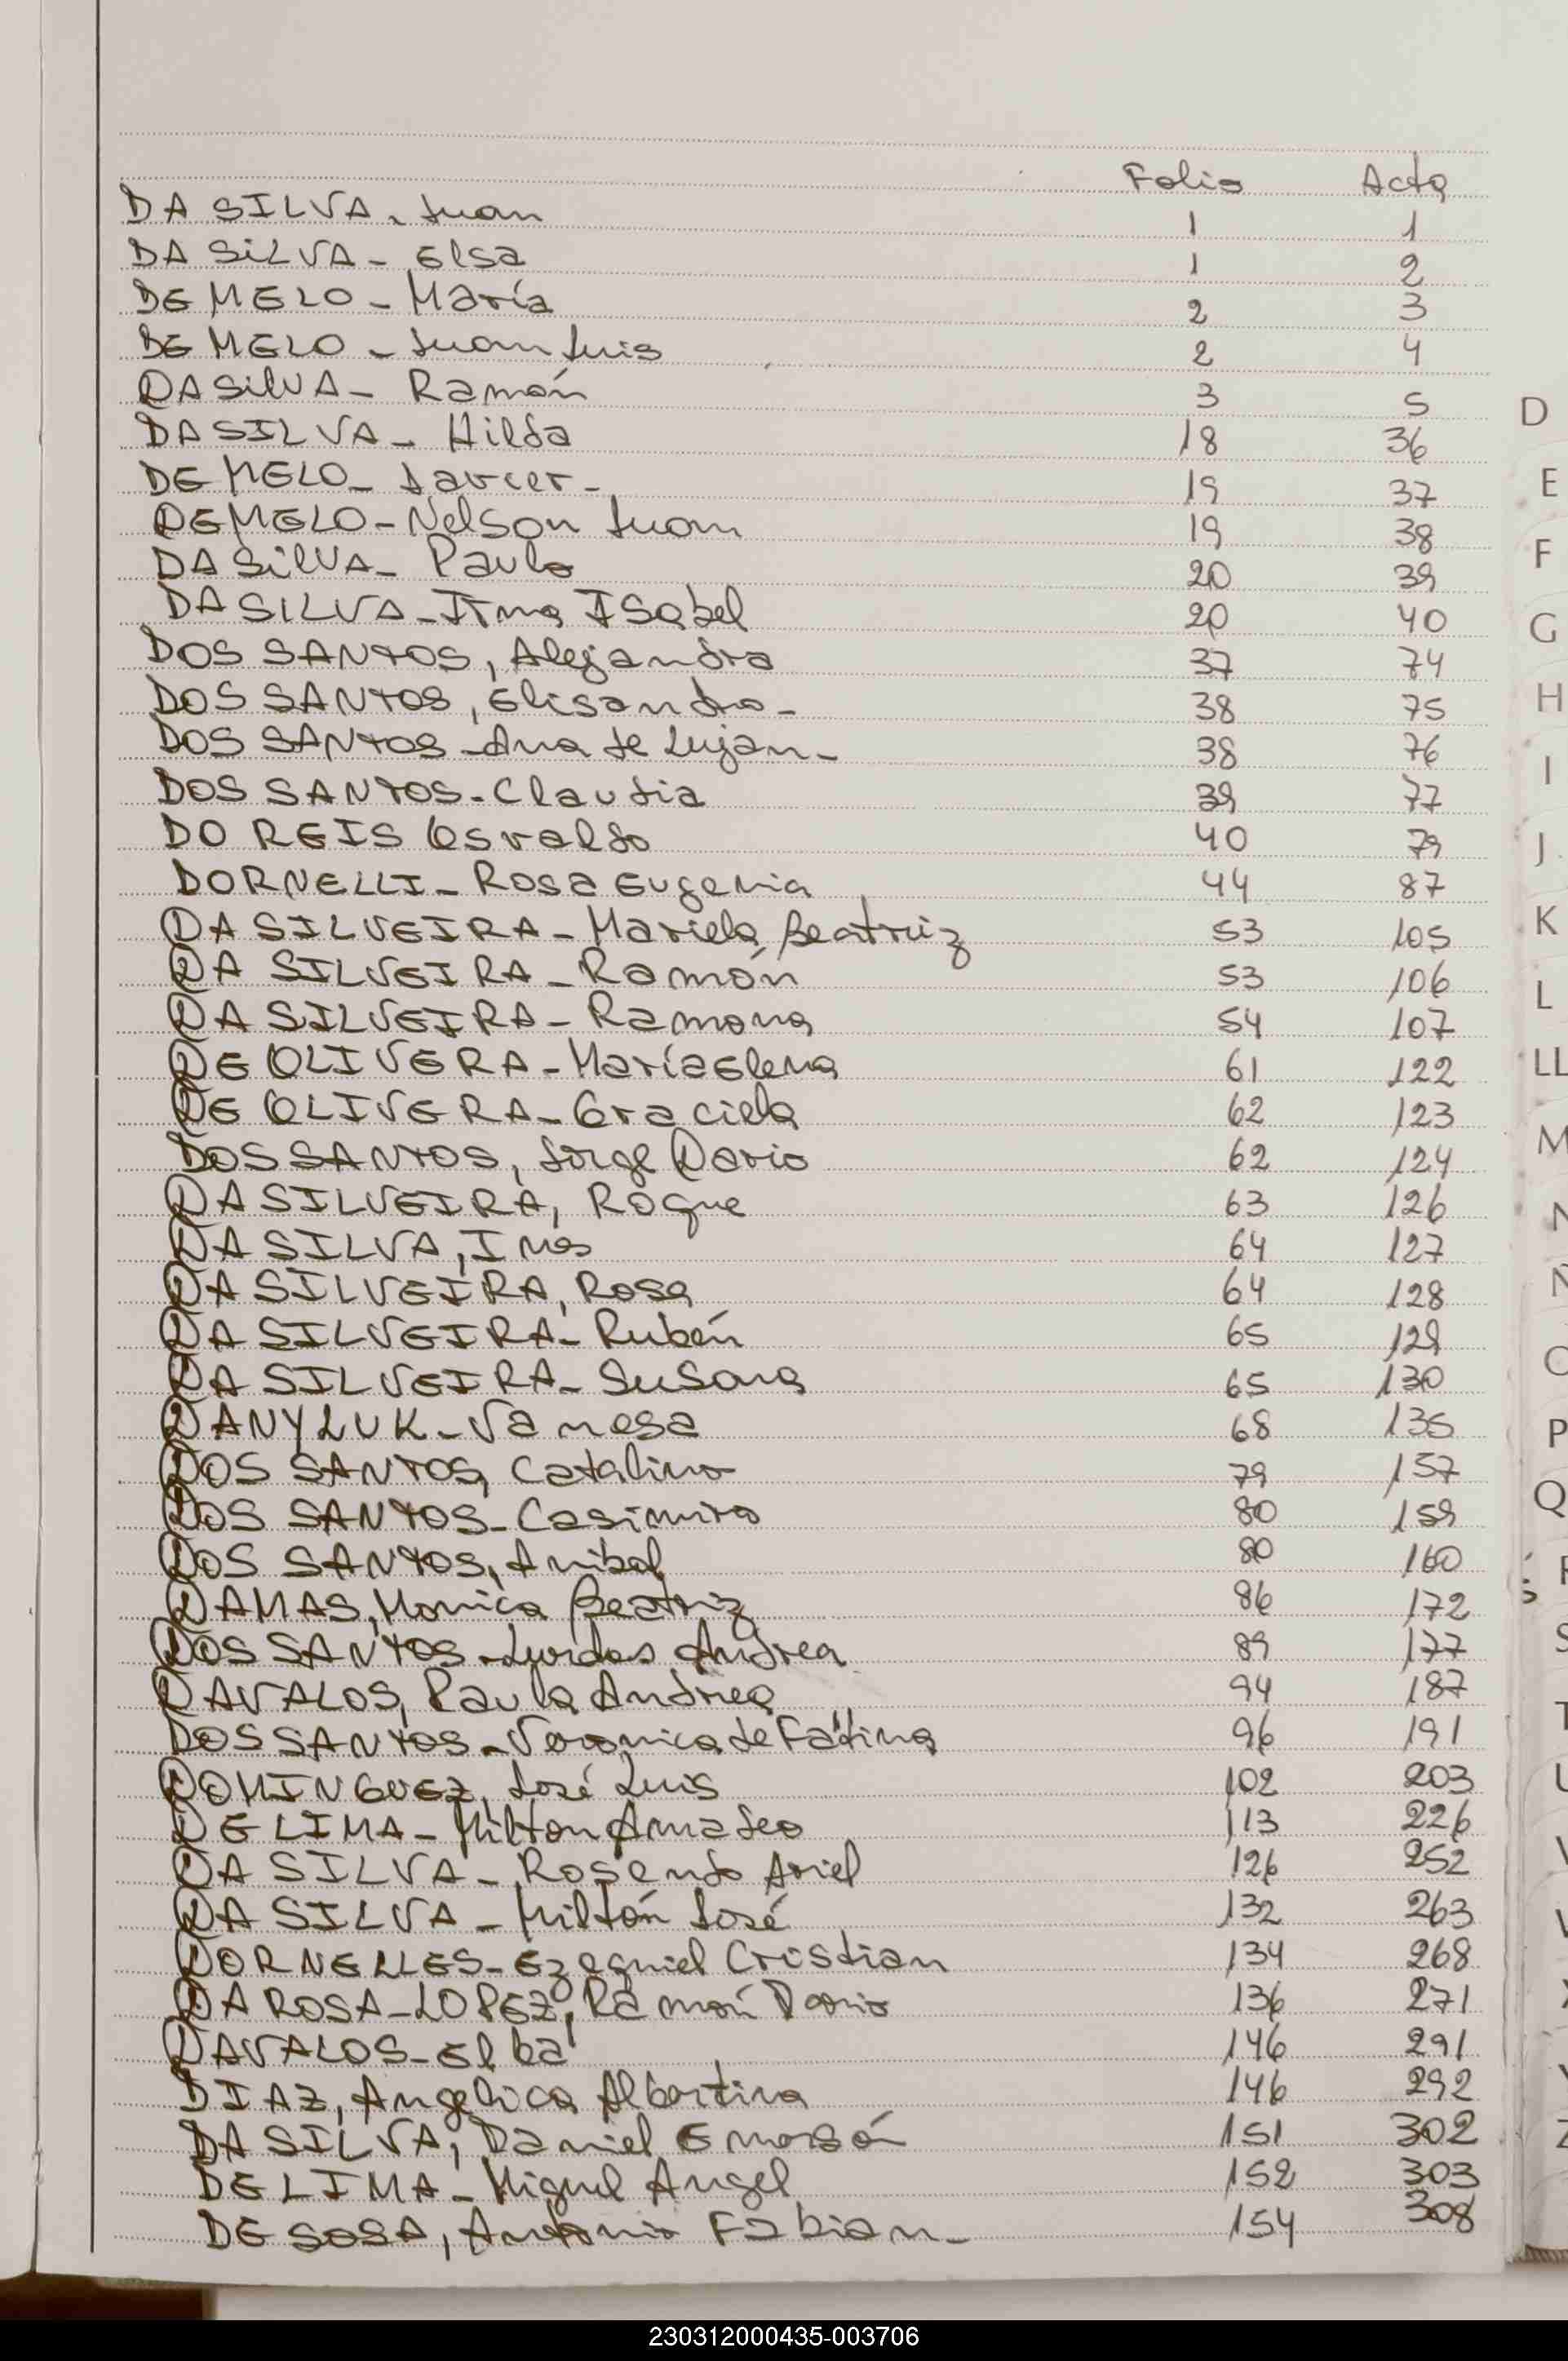 Folio Acta
DA SILVA - Juan 1 1
DA SILVA - Elsa 1 2
DE MELO - María 2 3
DE MELO - Juan Luis 2 4
DA SILVA - Ramón 3 5
DA SILVA - Hilda 18 36
DE MELO - Javier - 19 37
DE MELO - Nelson Juan 19 38
DA SILVA - Paulo 20 39
DA SILVA - Irma Isabel 20 40
DOS SANTOS, Alejandra 37 74
DOS SANTOS, Elisandro - 38 75
DOS SANTOS - Ana de Lujan - 38 76
DOS SANTOS - Claudia 39 77
DO REIS Osvaldo 40 79
DORNELLI - Rosa Eugenia 44 87
DA SILVEIRA - Mariela Beatriz 53 105
DA SILVEIRA - Ramón 53 106
DA SILVEIRA - Ramona 54 107
DE OLIVERA - María Elena 61 122
DE OLIVERA - Graciela 62 123
DOS SANTOS, Jorge Dario 62 124
DA SILVEIRA, Roque 63 126
DA SILVA, Ines 64 127
DA SILVEIRA, Rosa 64 128
DA SILVEIRA - Rubén 65 129
DA SILVEIRA - Susana 65 130
DANYLUK - Vanesa 68 135
DOS SANTOS, Catalino 79 157
DOS SANTOS - Casimiro 80 159
DOS SANTOS, Anibal 80 160
DAMAS, Monica Beatriz 86 172
DOS SANTOS - Lurdes Andrea 89 177
DAVALOS, Paula Andrea 94 187
DOS SANTOS - Veronica de Fátima 96 191
DOMINGUEZ, José Luis 102 203
DE LIMA - Milton Amadeo 113 226
DA SILVA - Rosendo Ariel 126 252
DA SILVA - Miltón José 132 263
DORNELLES - Ezequiel Cristian 134 268
DA ROSA - LOPEZ, Ramón Dario 136 271
DAVALOS - Elba 146 291
DIAZ, Angelica Albertina 146 292
DA SILVA, Daniel Emersón 151 302
DE LIMA - Miguel Angel 152 303
DE SOSA, Antonio Fabian - 154 308
D
E
F
G
H
I
J
K
L
LL
M
N
Ñ
O
P
Q
R
S
T
U
V
W
X
Y
Z
230312000435-003706